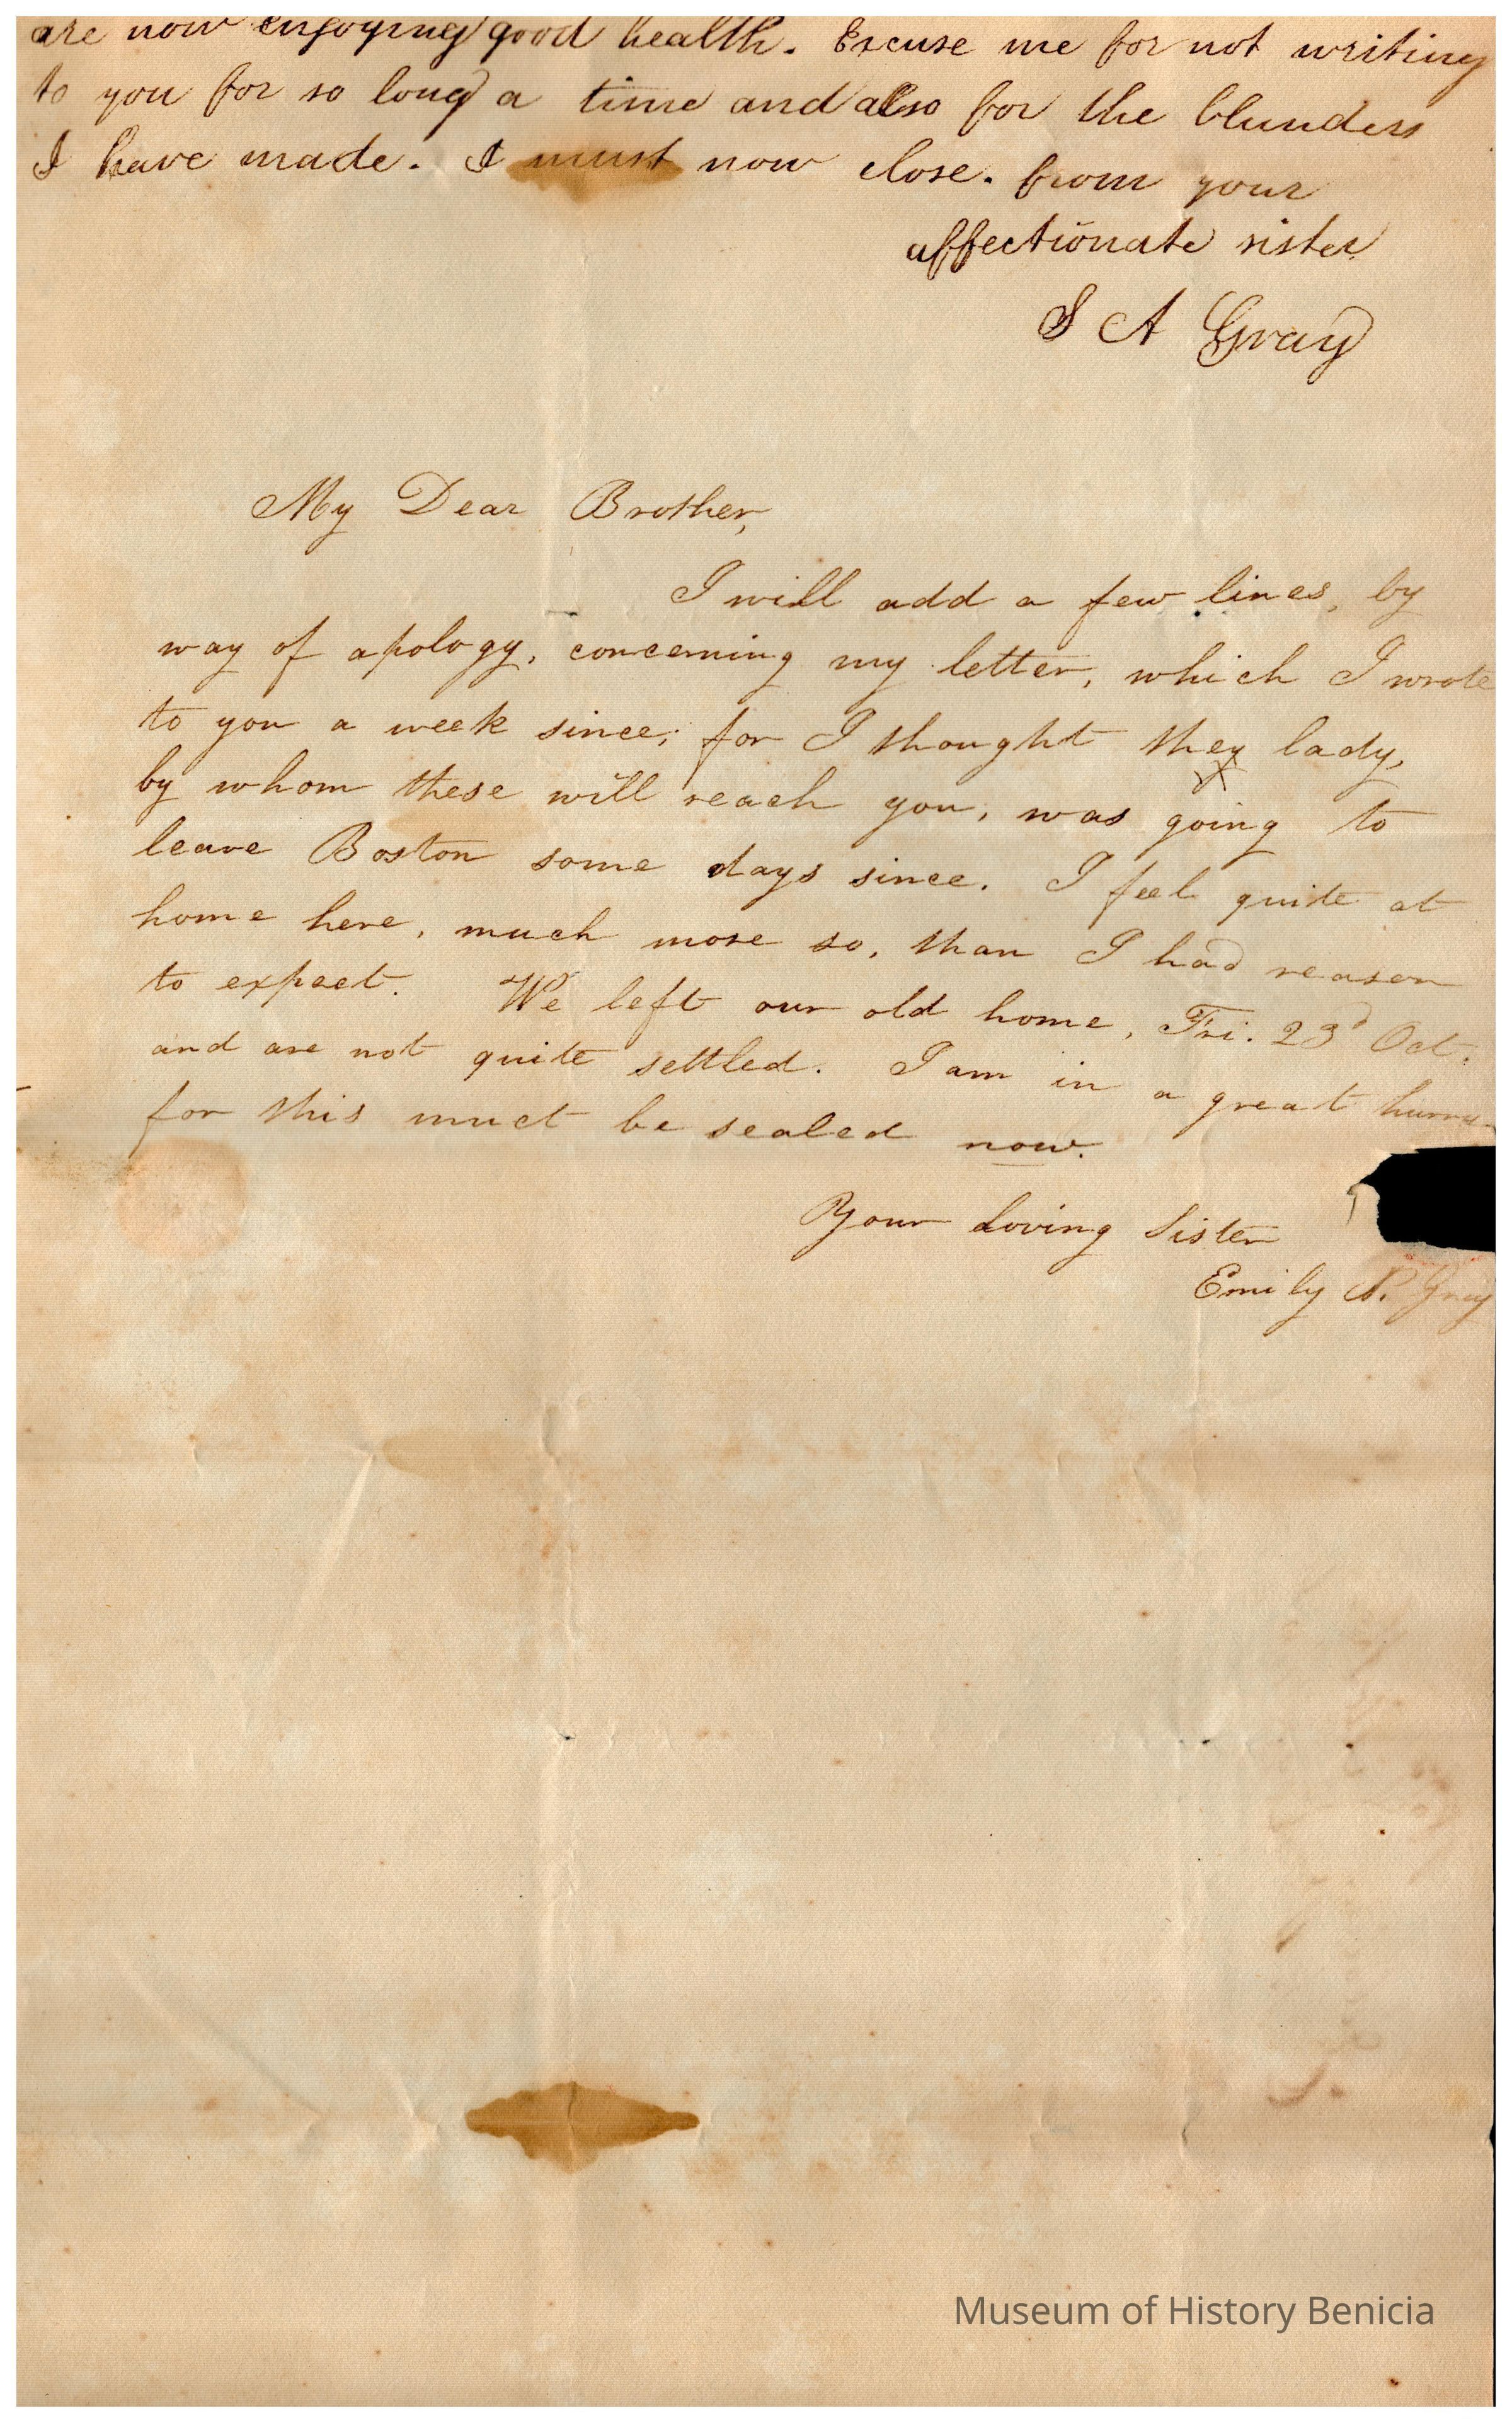 are now enjoying good health. Excuse me for not writing
to you for so long a time and also for the blunders
I have made. I must now close. from your
affectionate sister
S A Gray
My Dear Brother,
I will add a few lines, by
way of apology, concerning my letter, which I wrote
to you a week since; for I thought they lady,
by whom these will reach you, was going to
leave Boston some days since. I feel quite at
home here, much more so, than I had reason
to expect. We left our old home, Fri. 23d Oct.
and are not quite settled. I am in a great hurry
for this must be sealed now.
Your Loving Sister
Emily N. Gray
Museum of History Benicia